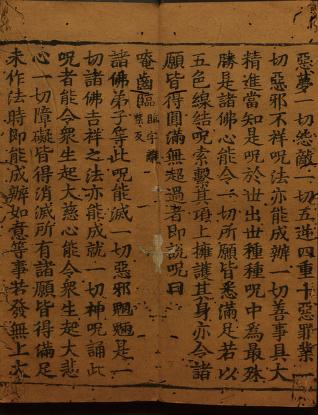 惡夢一切怨敵一切五逆四重十惡罪業一
切惡邪不祥呪法亦能成辦一切善事具大
精進當知是呪於世出世種種呪中為最殊
勝是諸佛心能令一切所願皆悉滿足若以
五色線結呪索繫其項上擁護其身亦令諸
願皆得圓滿無超過者即說呪曰
唵齒臨
諸佛弟子等此呪能滅一切惡邪魍魎是一
切諸佛吉祥之法亦能成就一切神呪誦此
呪者能令眾生起大慈心能令眾生起大悲
心一切障礙皆得消滅所有諸願皆得滿足
未作法時即能成辦如意等事若發無上大